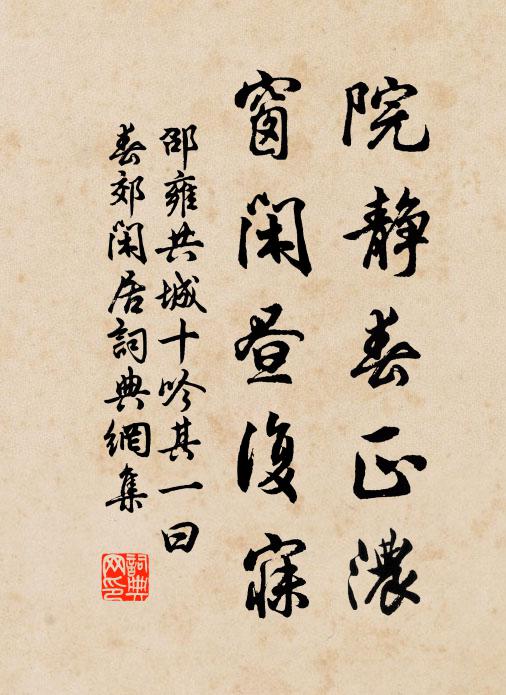 院静春正濃
窗閑晝復寐
邵雍共城十吟其一曰
春郊閑居詞典網集
詞典网印